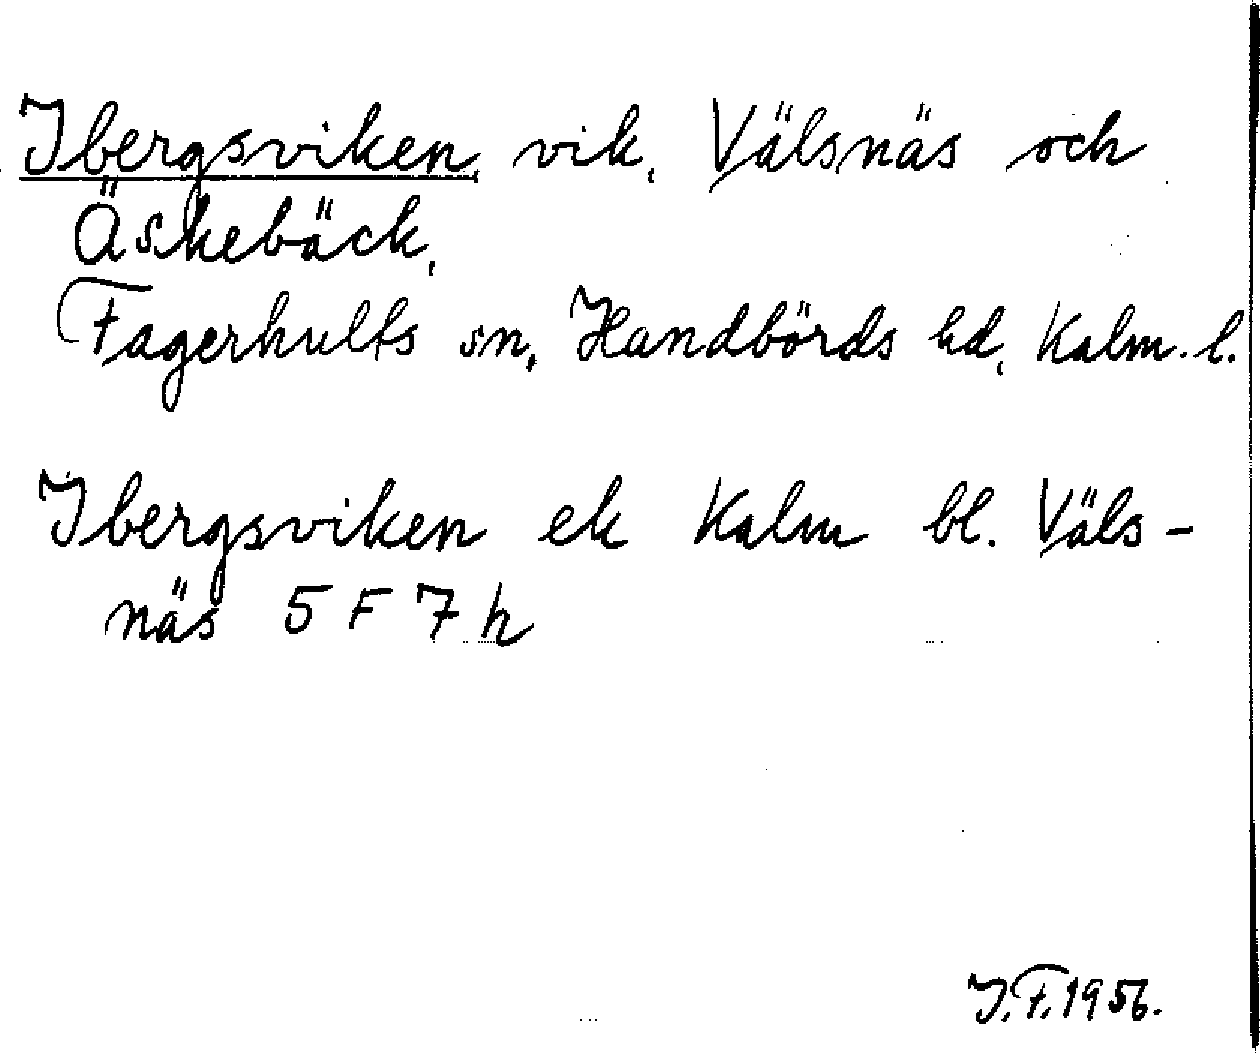 Ibergsviken, vik, Välsnäs och
Äskebäck,
Fagerhults sn, Handbörds hd, Kalm. l.
Ibergsviken ek Kalm bl. Väls-
näs 5 F 7 h
I.F. 1956.